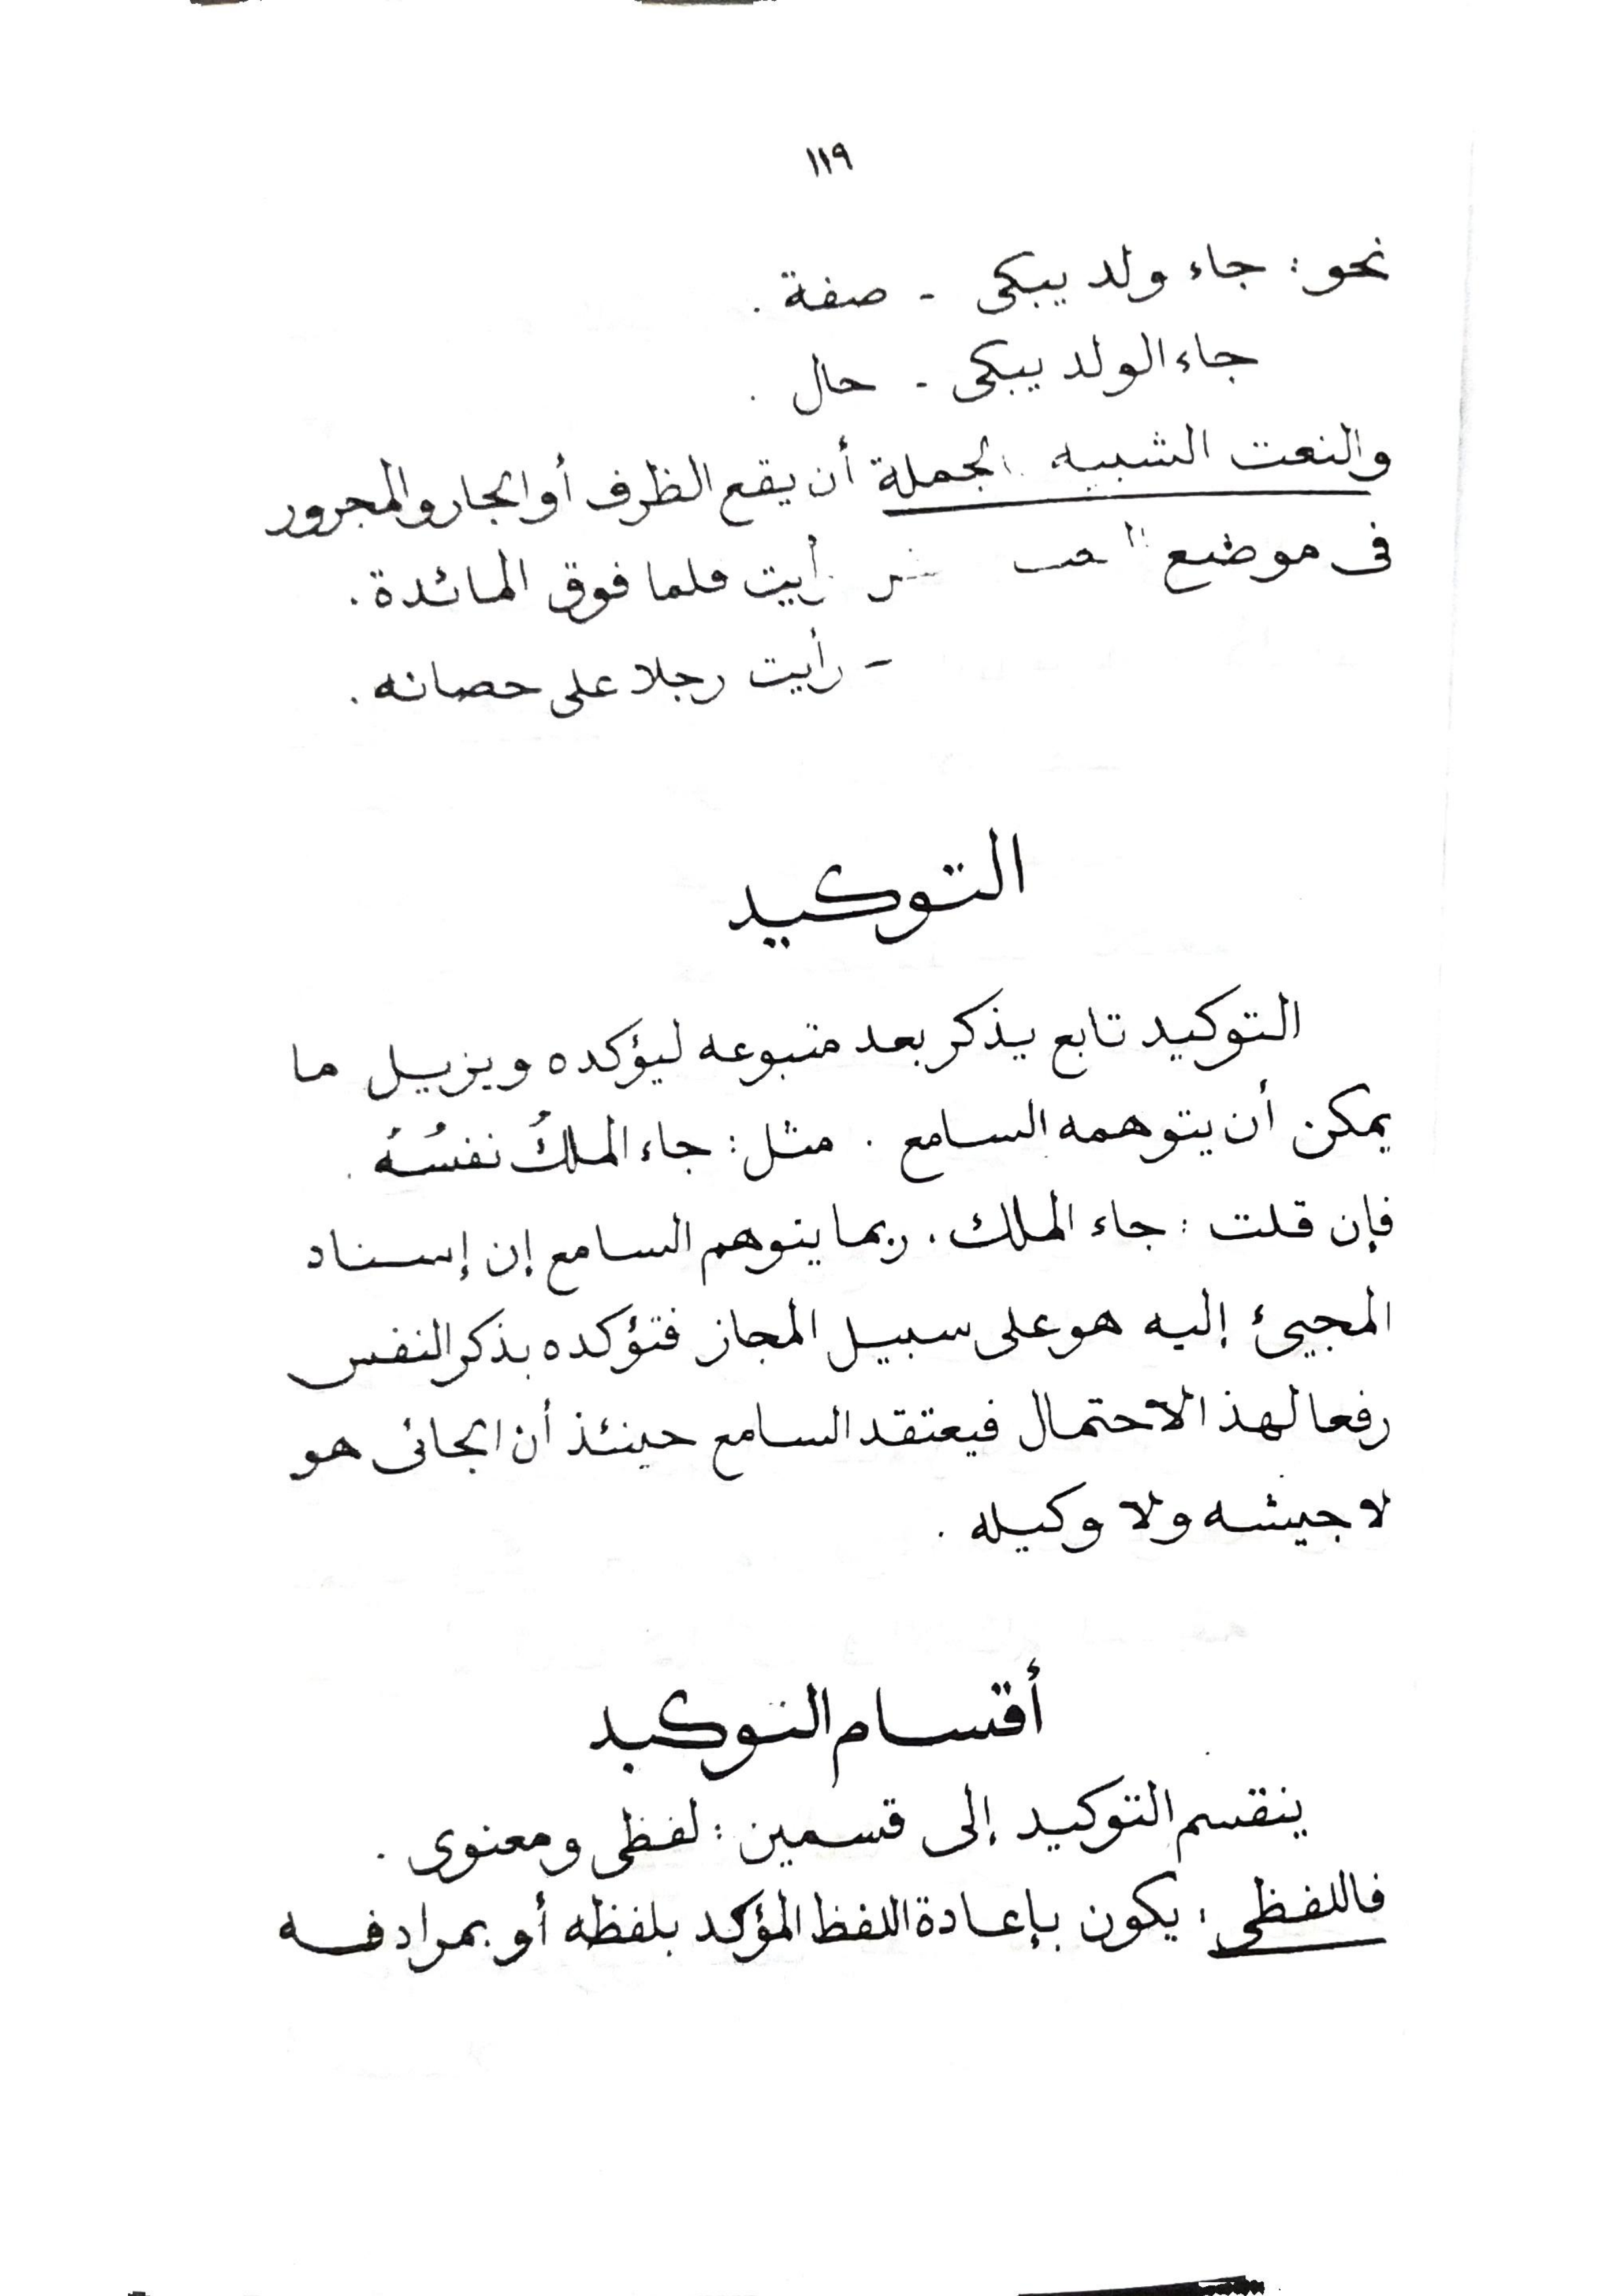 ١١٩
نحو: جاء ولد يبكى - صفة .
جاء الولد يبكى - حال .
والنعت الشبيه الجملة أن يقع الظرف أو الجار والمجرور
فى موضع رأيت قلما فوق المائدة .
- رأيت رجلا على حصانه .
التوكيد
التوكيد تابع يذكر بعد متبوعه ليؤكده ويزيل ما
يمكن أن يتوهمه السامع . مثل: جاء الملكُ نفسُهُ .
فإن قلت : جاء الملك . ربما يتوهم السامع إن إسناد
المجيئ إليه هو على سبيل المجاز فتؤكده بذكر النفس
رفعا لهذ الاحتمال فيعتقد السامع حينئذ أن الجائى هو
لا جيشه ولا وكيله .
أقسام التوكيد
ينقسم التوكيد إلى قسمين : لفظى ومعنوى .
فاللفظى : يكون بإعادة اللفظ المؤكد بلفظه أو بمرادفه